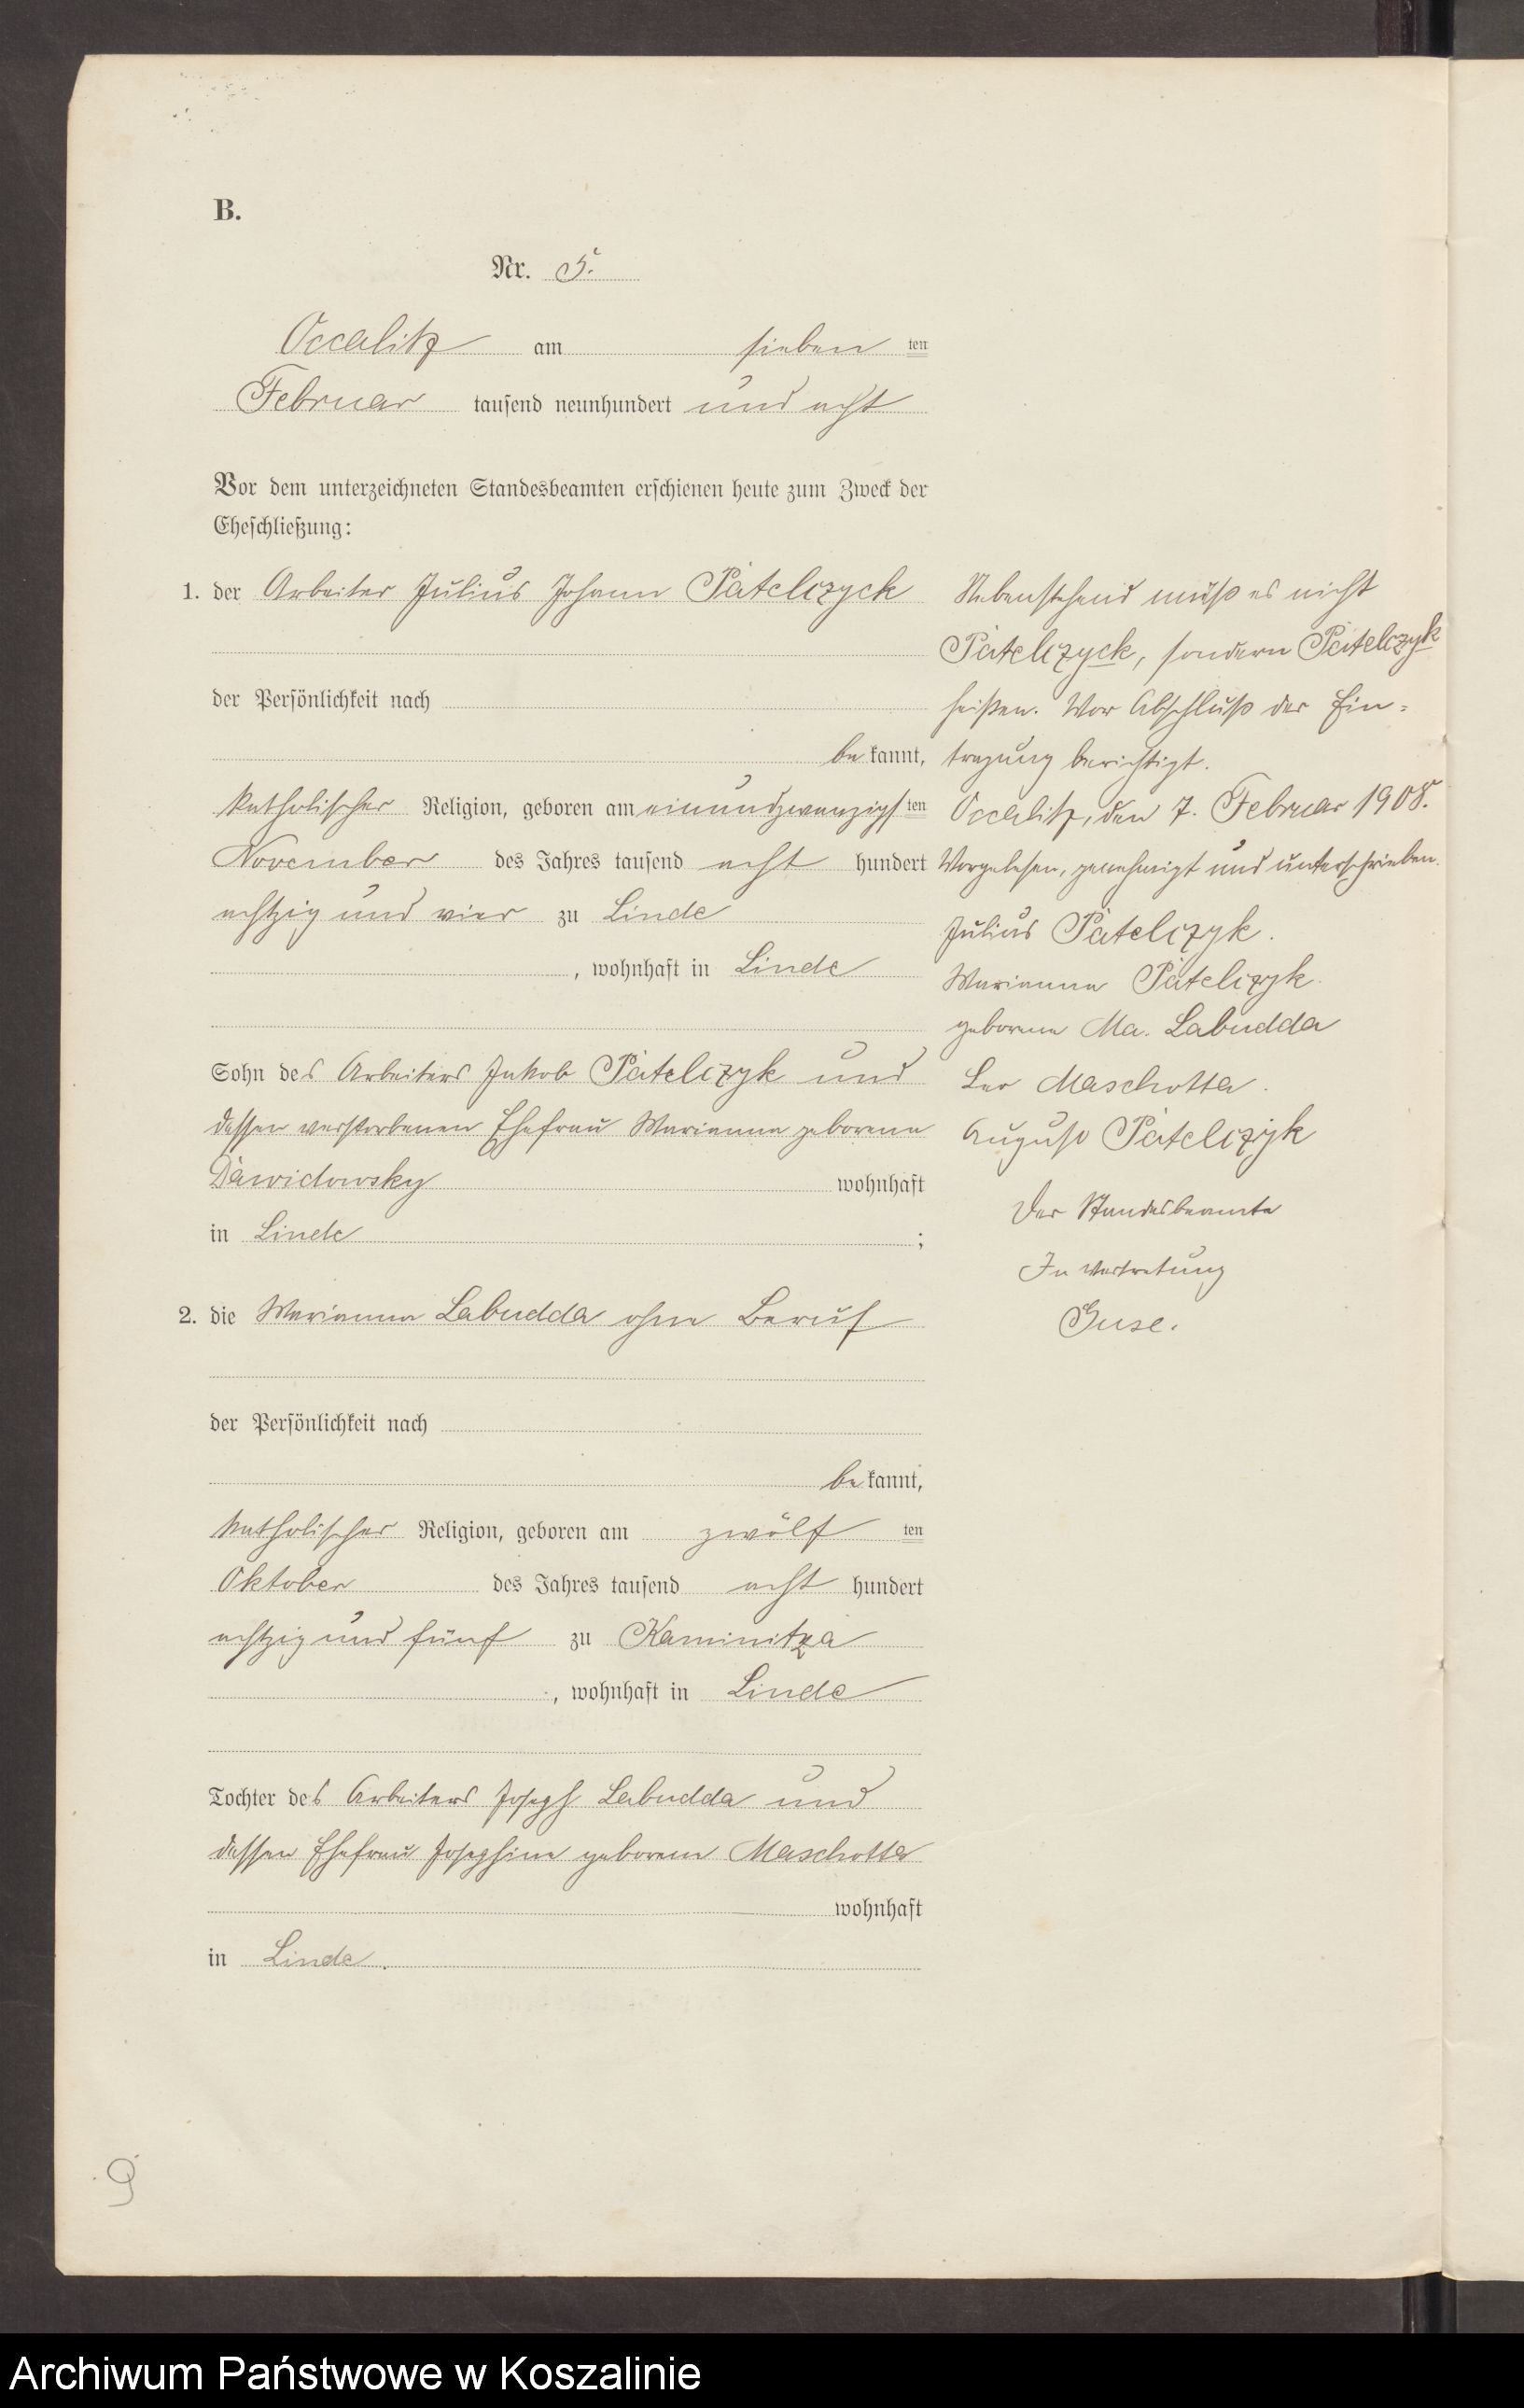 B.
Nr. 5.
Occalitz am sieben ten
Februar tausend neunhundert und acht
Vor dem unterzeichneten Standesbeamten erschienen heute zum Zweck der
Eheschließung:
1. der Arbeiter Julius Johann Patelczyck
der Persönlichkeit nach
be kannt,
katholischer Religion, geboren am einundzwanzigs ten
November des Jahres tausend acht hundert
achtzig und vier zu Linde
, wohnhaft in Linde
Sohn des Arbeiters Jakob Patelczyk und
dessen verstorbenen Ehefrau Marianna geborene
Dawidowsky wohnhaft
in Linde ;
2. die Marianna Labudda ohne Beruf
der Persönlichkeit nach
be kannt,
katholischer Religion, geboren am zwölf ten
Oktober des Jahres tausend acht hundert
achtzig und fünf zu Kaminitza
, wohnhaft in Linde
Tochter des Arbeiters Joseph Labudda und
dessen Ehefrau Josephine geborene Maschotta
wohnhaft
in Linde.
Nebenstehend muß es nicht
Patelczyck, sondern Patelczyk
heißen. Vor Abschluß der Ein=
tragung berichtigt.
Occalitz, den 7. Februar 1908.
Vorgelesen, genehmigt und unterschrieben.
Julius Patelczyk.
Marianna Patelczyk.
geborene Ma. Labudda
Leo Maschotta.
August Patelczyk
Der Standesbeamte
In Vertretung
Guse.
9
Archiwum Państwowe w Koszalinie